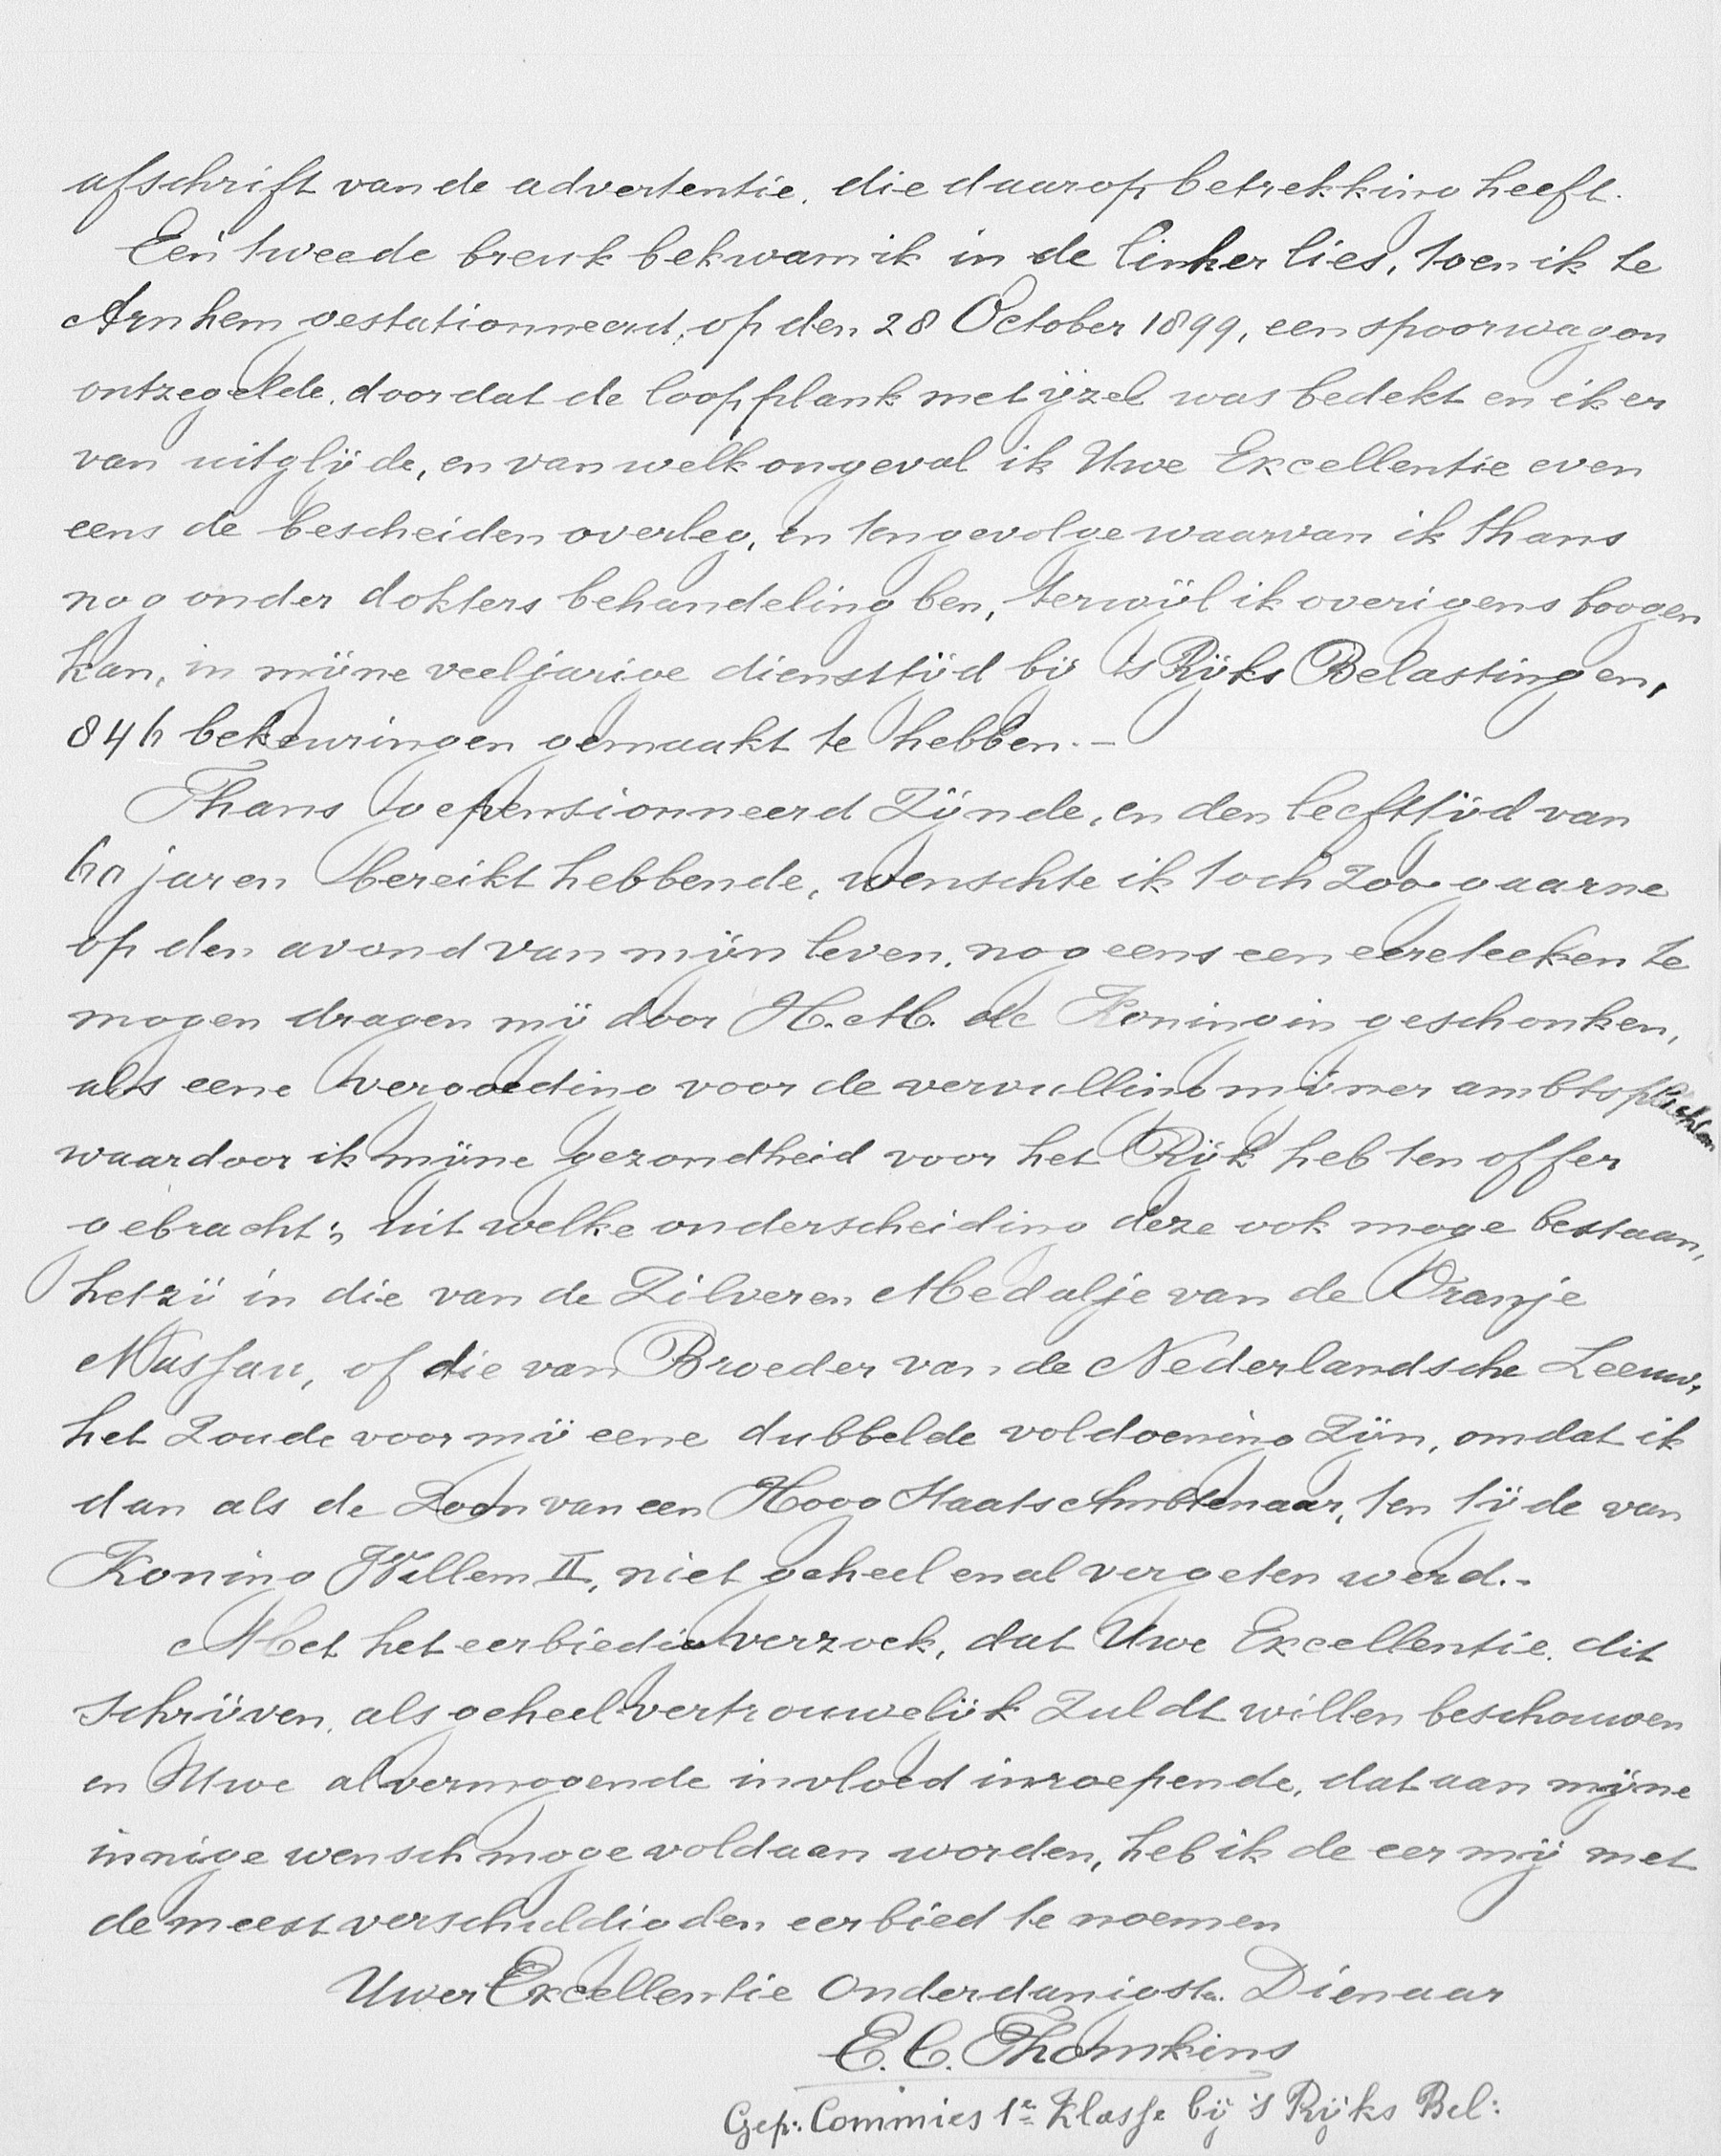 afschrift van de advertentie, die daarop betrekking heeft.
Een tweede breuk bekwam ik in de linker lies, toen ik te
Arnhem gestationneerd, op den 28 October 1899, een spoorwagon
ontzegelde, doordat de loopplank met ijzel was bedekt en ik er
van uitglijde, en van welk ongeval ik Uwe Excellentie even
eens de bescheiden overleg, en tengevolge waarvan ik thans
nog onder dokters behandeling ben, terwijl ik overigens boogen
kan, in mijne veeljarige diensttijd bij 's Rijks Belastingen,
846 bekeuringen gemaakt te hebben.-
Thans gepensionneerd Zijnde, en den leeftijd van
60 jaren bereikt hebbende, wenschte ik toch Zoo gaarne
op den avond van mijn leven, nog eens een eereteeken te
mogen dragen mij door H.M. de Koningin geschonken,
als eene vergoeding voor de vervulling mijner ambtsplichten
waardoor ik mijne gezondheid voor het Rijk heb ten offer
gebracht; uit welke onderscheiding deze ook moge bestaan,
hetzij in die van de Zilveren Medalje van de Oranje
Nassau, of die van Broeder van de Nederlandsche Leeuw,
het Zoude voor mij eene dubbelde voldoening Zijn, omdat ik
dan als de Zoon van een Hoog Staats Ambtenaar, ten tijde van
Koning Willem II, niet geheel en al vergeten werd.-
Met het eerbiedig verzoek, dat Uwe Excellentie, dit
schrijven, als geheel vertrouwelijk Zuldt willen beschouwen
en Uwe alvermogende invloed inroepende, dat aan mijne
innige wensch moge voldaan worden, heb ik de eer mij met
de meest verschuldigden eerbied te noemen
Uwer Excellentie Onderdanigste Dienaar
E. C. Thomkins
Gep: Commies 1e Klasse bij 's Rijks Bel: